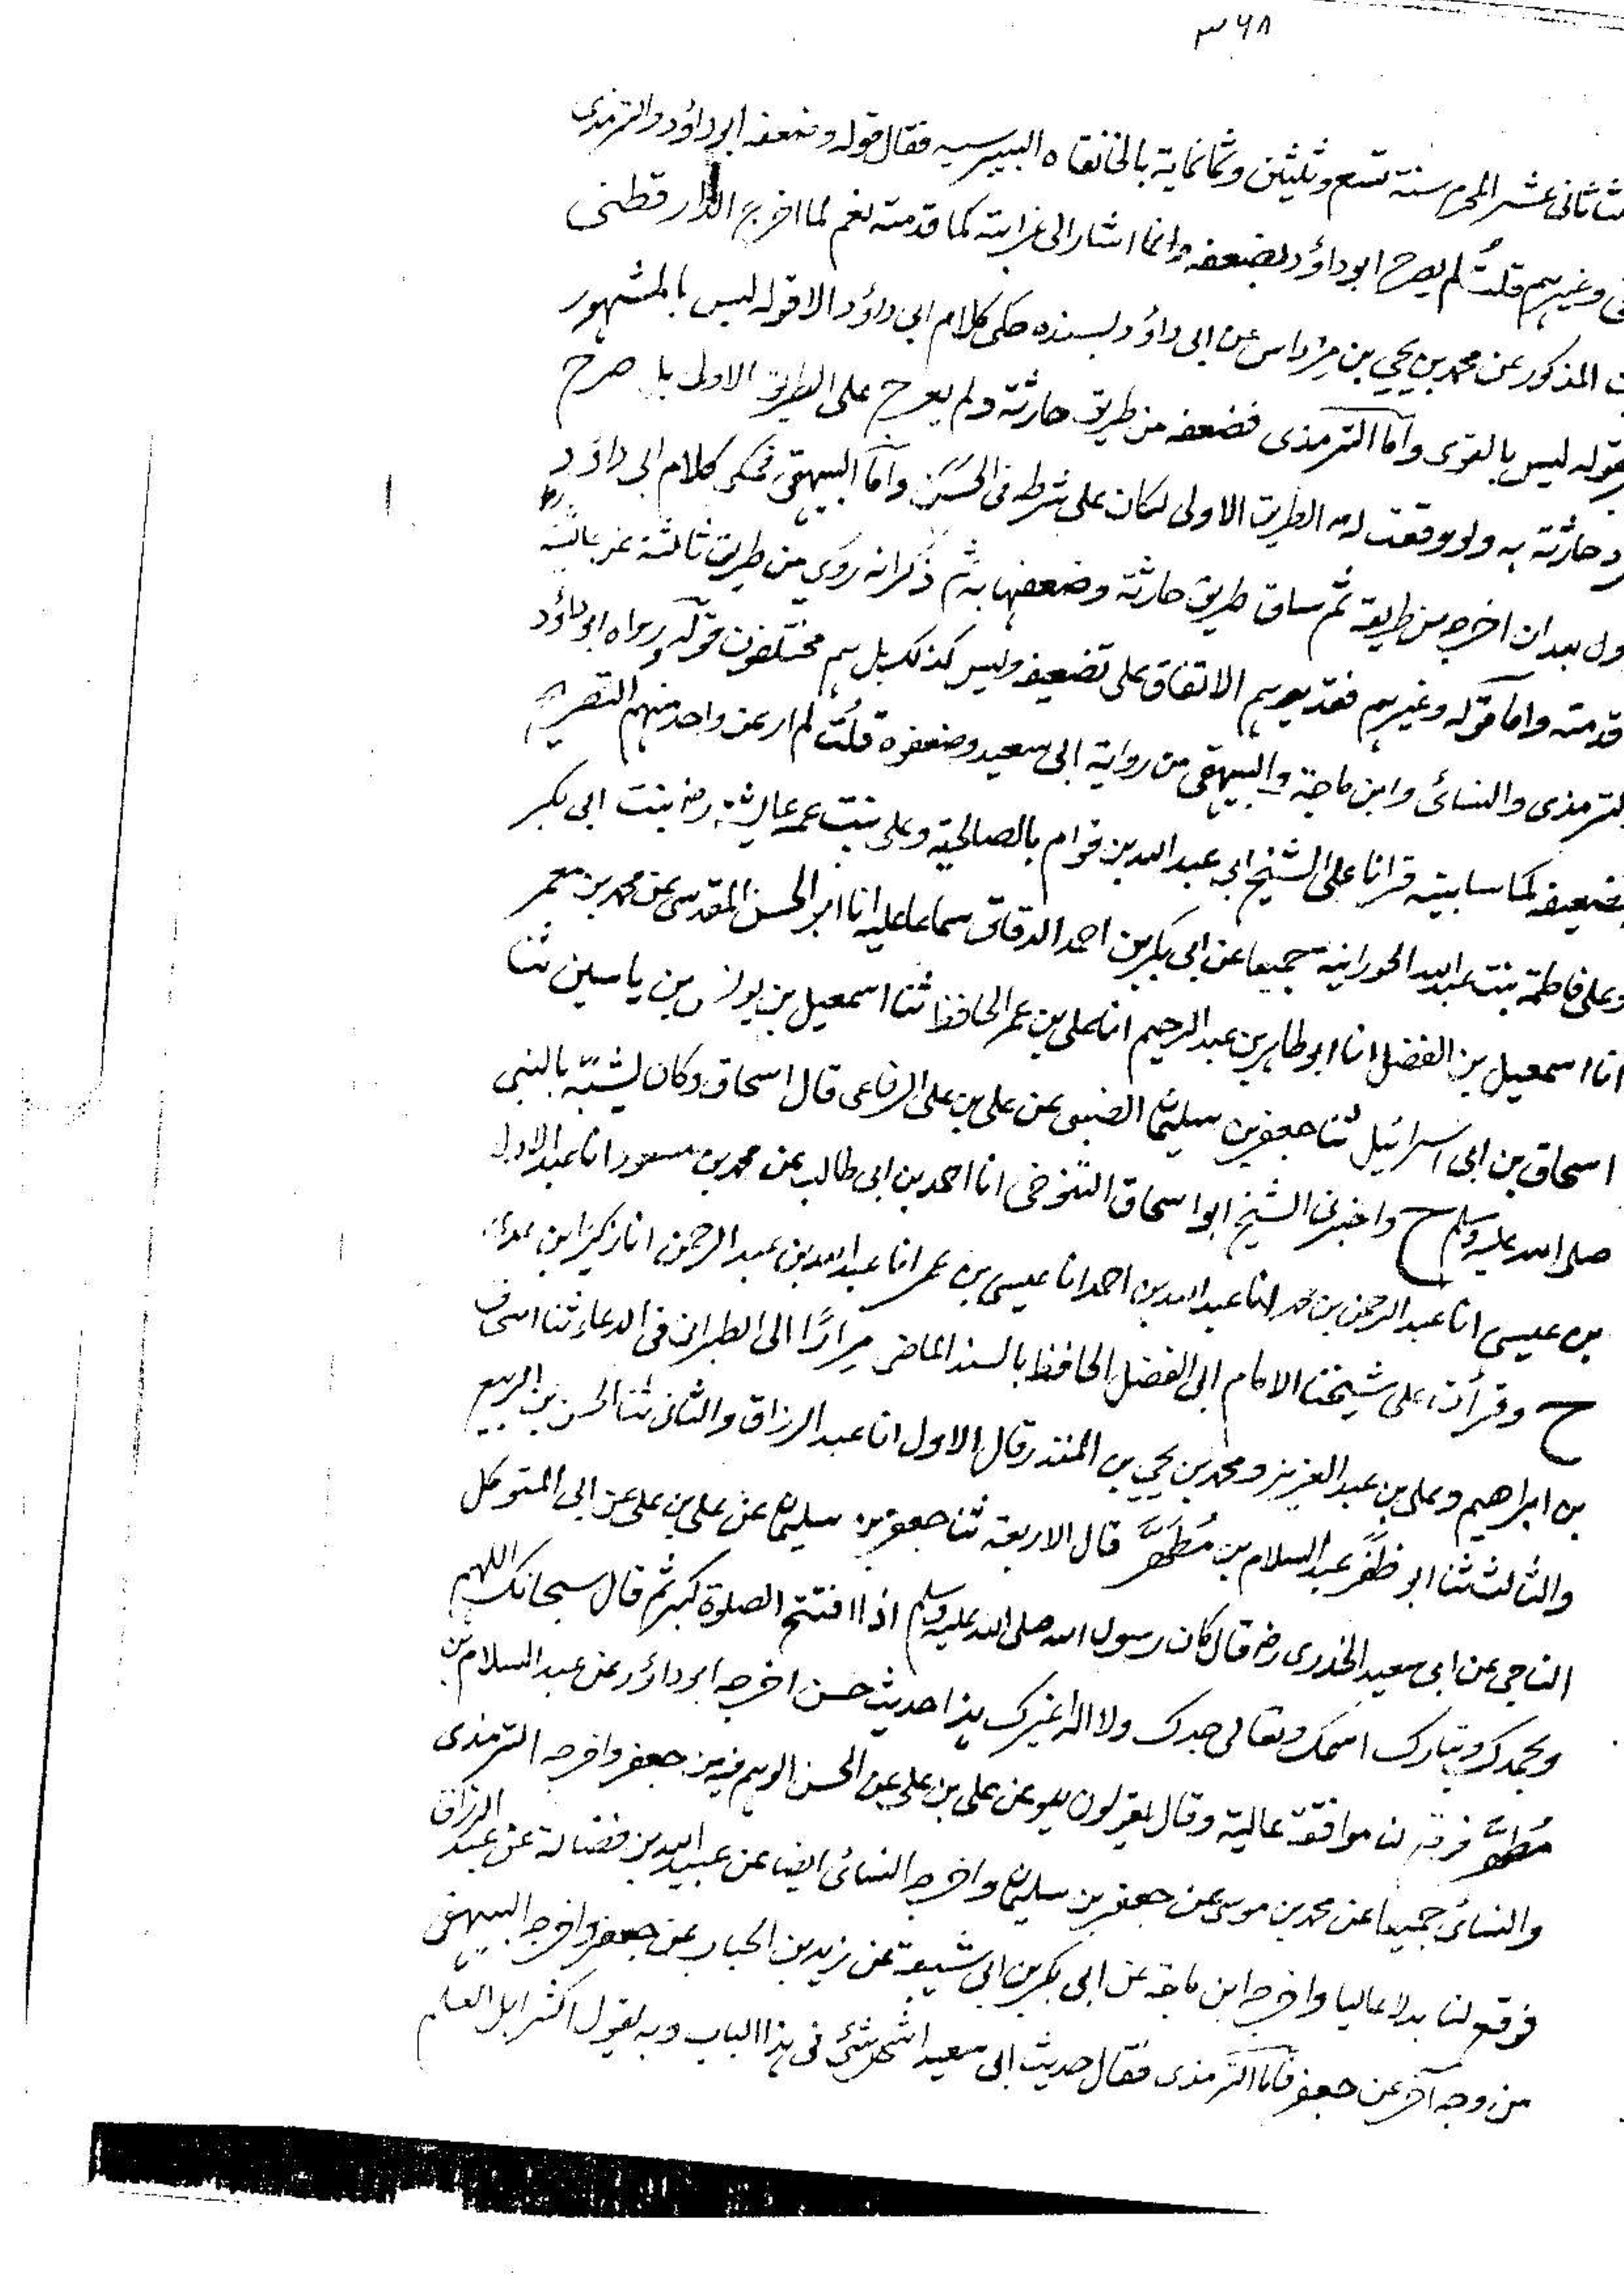 ٣٦٨
ثانی عشر المحرم سنة تسع وثلثین وثمانمایة بالخانقاه البیبرسیه فقال قوله وضعفه ابوداؤد والترمذی
وغیرهم قلتُ لم یصرح ابوداؤد بضعفه وانما اشار الی غرابته کما قدمته نعم لما اخرج الدارقطنی
المذکور عن محمد بن یحیی بن مِرْداس عن ابی داؤد بسنده حکی کلام ابی داؤد الا قوله لیس بالمشهور
قوله لیس بالقوی وامّا الترمذی فضعفه من طریق حارثة ولم یعرج علی الطریق الاولی بل صرح
حارثة به ولو وقعت له الطریق الاولی لکان علی شرطه فی الحَسَن وامّا البیهقی فحکی کلام ابی داؤد
بعد ان اخرجه من طریقه ثم ساق طریق حارثة وضعفها به ثم ذکر انه رُوِی من طریق ثالثة عن عائشة رضـ
قدمته وامّا قوله وغیرهم فقد یوهم الاتفاق علی تضعیفه ولیس کذلک بل هم مختلفون قوله ورواه ابوداؤد
الترمذی والنسائی وابن ماجة والبیهقی من روایة ابی سعید وضعفوه قلتُ لم ار عن واحد منهم التصریح
بتضعیفه کما سابینه قرانا علی الشیخ ابی عبد الله بن قوام بالصالحیة وعلی بنت عمه عائشة رضـ بنت ابی بکر
وعلی فاطمة بنت عبد الله الحورانیة جمیعا عن ابی بکر بن احمد الدقاق سماعا علیه انا ابو الحسن المقدسی عن محمد بن معمر
انا اسمعیل بن الفضل انا ابو طاهر بن عبد الرحیم انا علی بن عمر الحافظ ثنا اسمعیل بن یونس بن یاسین ثنا
اسحاق بن ابی اسرائیل ثنا جعفر بن سلیمان الضبعی عن علی بن علی الرفاعی قال اسحاق وکان یشبّه بالنبی
صلی الله علیه وسلم ح واخبرنی الشیخ ابو اسحاق التنوخی انا احمد بن ابی طالب عن محمد بن مسعود انا عبد الاول
بن عیسی انا عبد الرحمن بن محمد انا عبد الله بن احمد انا عیسی بن عمر انا عبد الله بن عبد الرحمن انا زکریا بن عدی
ح وقرأت علی شیخنا الامام ابی الفضل الحافظ بالسند الماضی مِرَارًا الی الطبرانی فی الدعاء ثنا اسحاق
بن ابراهیم وعلی بن عبد العزیز ومحمد بن یحیی بن المنذر قال الاول انا عبد الرزاق والثانی ثنا الحسن بن الربیع
والثالث ثنا ابو ظفَر عبد السلام بن مُطَهَّر قال الاربعة ثنا جعفر بن سلیمان عن علی بن علی عن ابی المتوکل
الناجی عن ابی سعید الخدری رضـ قال کان رسول الله صلی الله علیه وسلم اذا افتتح الصلوة کبر ثم قال سبحانک اللهم
وبحمدک وتبارک اسمک وتعالی جدک ولا اله غیرک هذا حدیث حسن اخرجه ابوداؤد عن عبد السلام بن
مُطَهَّر فوقع لنا موافقة عالیة وقال یقولون هو عن علی بن علی عن الحسن الوهم فیه من جعفر واخرجه الترمذی
والنسائی جمیعا عن محمد بن موسی عن جعفر بن سلیمان واخرجه النسائی ایضا عن عبید الله بن فضالة عن عبد الرزاق
فوقع لنا بدلا عالیا واخرجه ابن ماجة عن ابی بکر بن ابی شیبة عن زید بن الحباب عن جعفر واخرجه البیهقی
من وجه آخر عن جعفر فامّا الترمذی فقال حدیث ابی سعید اشهر شئ فی هذا الباب وبه یقول اکثر اهل العلم